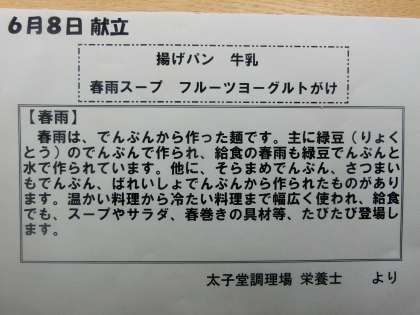 6月8日 献立
揚げパン　牛乳
春雨スープ　フルーツヨーグルトがけ
【春雨】
　春雨は、でんぷんから作った麺です。主に緑豆（りょく
とう）のでんぷんで作られ、給食の春雨も緑豆でんぷんと
水で作られています。他に、そらまめでんぷん、さつまい
もでんぷん、ばれいしょでんぷんから作られたものがあり
ます。温かい料理から冷たい料理まで幅広く使われ、給食
でも、スープやサラダ、春巻きの具材等、たびたび登場し
ます。
太子堂調理場 栄養士　　より